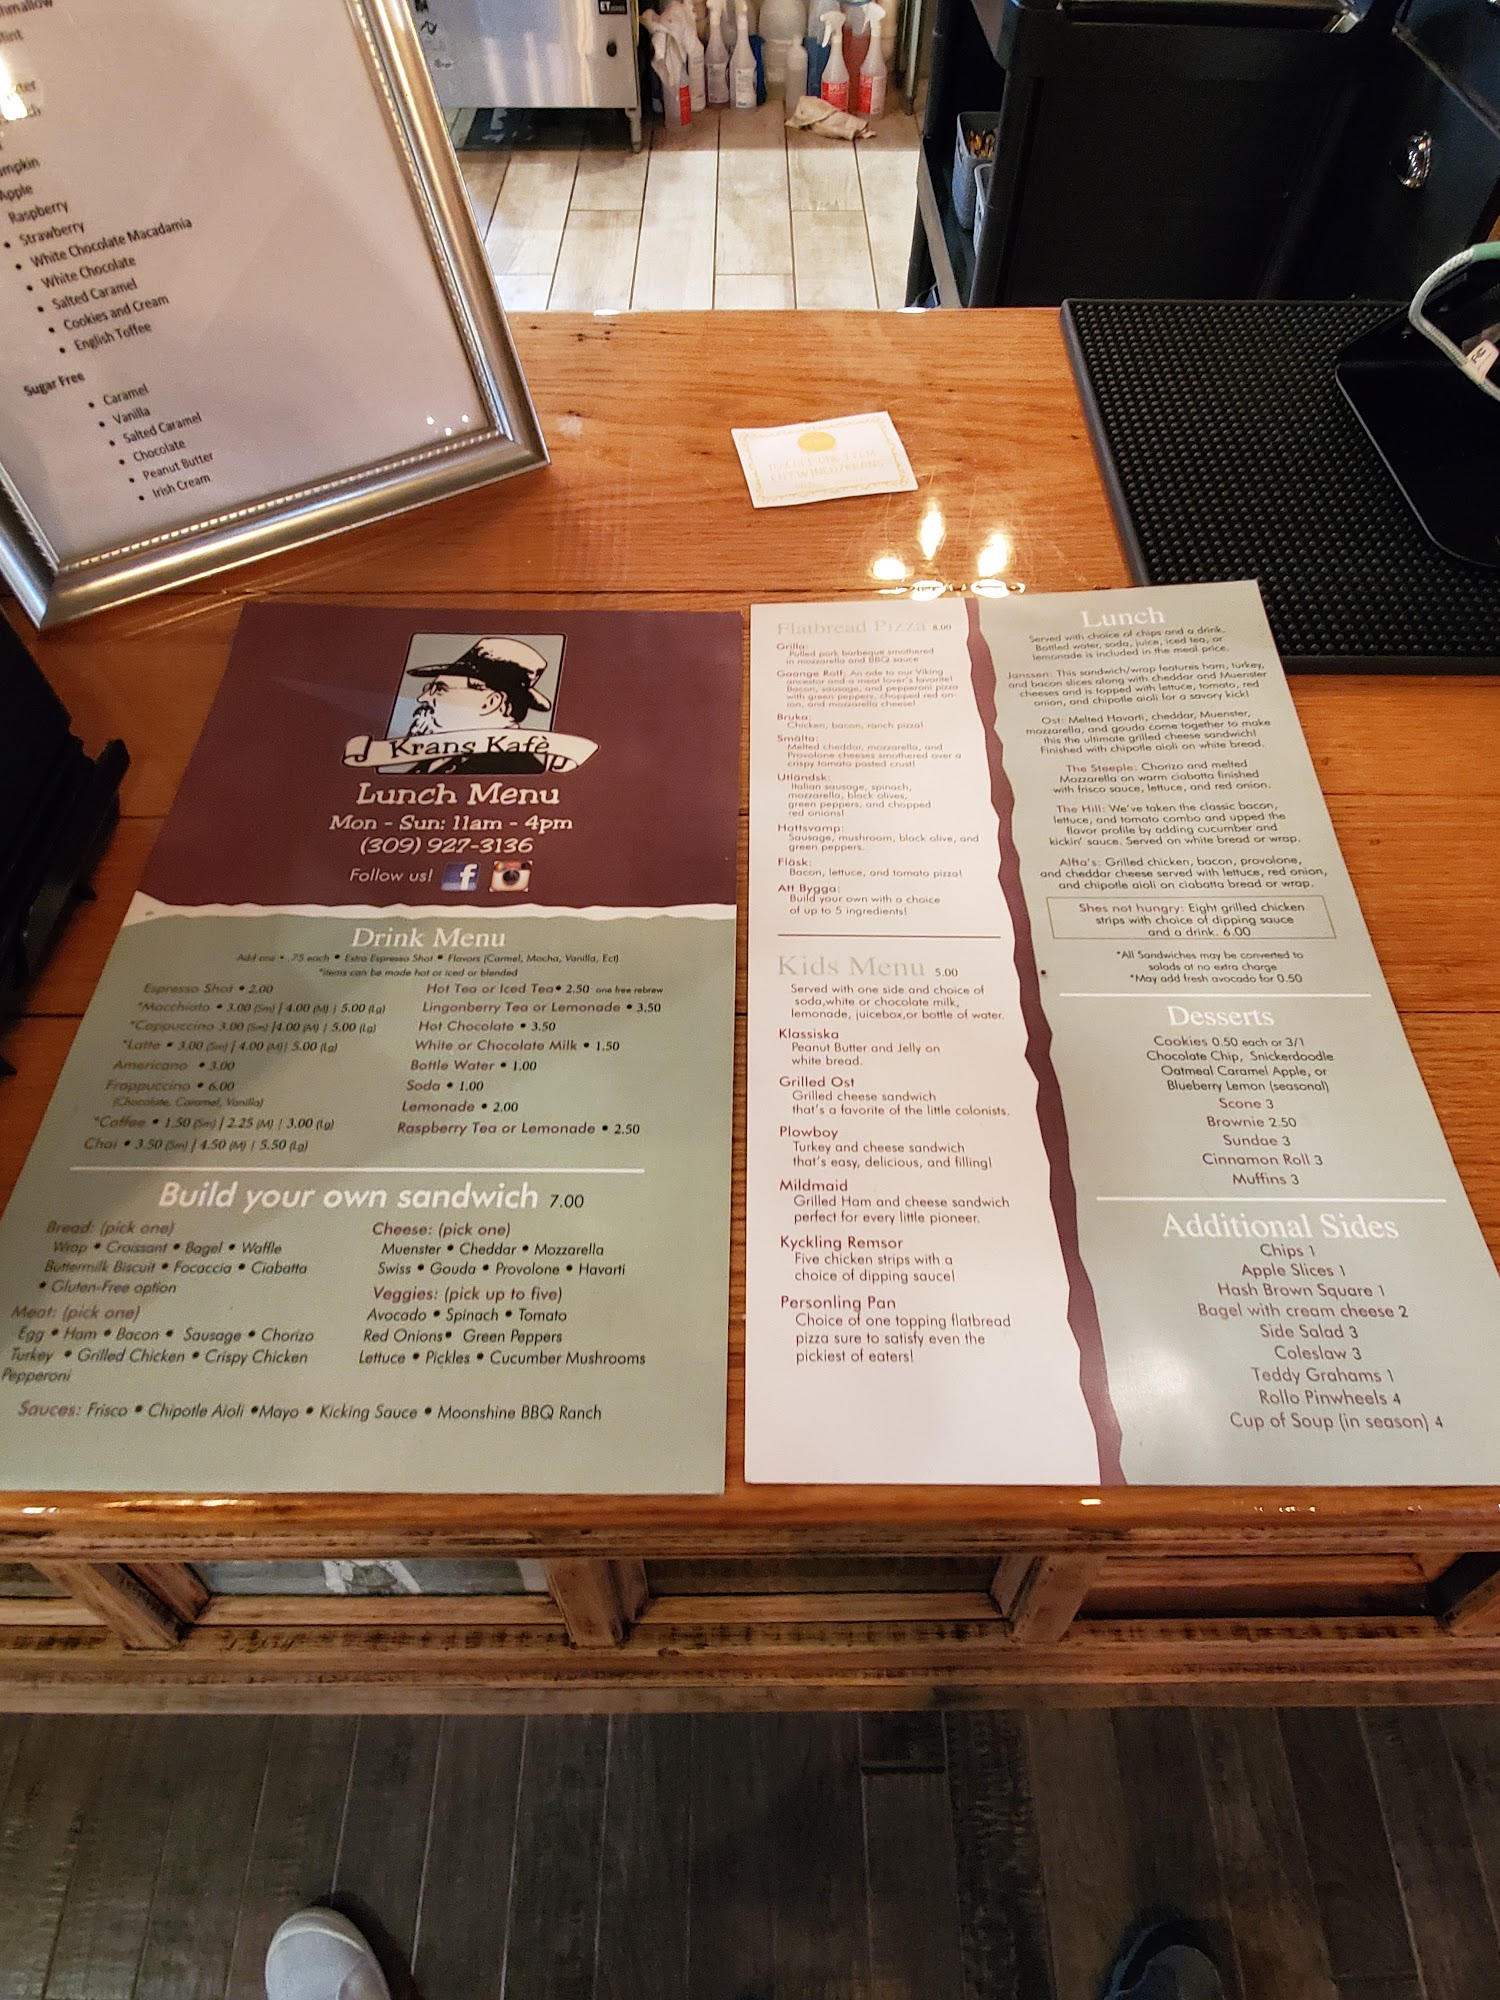 Raspberry
• Strawberry
• White Chocolate Macadamia
• White Chocolate
• Salted Caramel
• Cookies and Cream
• English Toffee
Sugar Free
• Caramel
• Vanilla
• Salted Caramel
• Chocolate
• Peanut Butter
• Irish Cream
Krans Kafè
Lunch Menu
Mon - Sun: 11am - 4pm
(309) 927-3136
Follow us!
Drink Menu
Add ons • .75 each • Extra Espresso Shot • Flavors (Carmel, Mocha, Vanilla, Ect)
*items can be made hot or iced or blended
Espresso Shot • 2.00
*Macchiato • 3.00 (Sm) | 4.00 (M) | 5.00 (Lg)
*Cappuccino 3.00 (Sm) |4.00 (M) | 5.00 (Lg)
*Latte • 3.00 (Sm) | 4.00 (M)| 5.00 (Lg)
Americano • 3.00
Frappuccino • 6.00
(Chocolate, Caramel, Vanilla)
*Coffee • 1.50 (Sm) | 2.25 (M) | 3.00 (Lg)
Chai • 3.50 (Sm) | 4.50 (M) | 5.50 (Lg)
Hot Tea or Iced Tea• 2.50 one free rebrew
Lingonberry Tea or Lemonade • 3.50
Hot Chocolate • 3.50
White or Chocolate Milk • 1.50
Bottle Water • 1.00
Soda • 1.00
Lemonade • 2.00
Raspberry Tea or Lemonade • 2.50
Build your own sandwich 7.00
Bread: (pick one)
Wrap • Croissant • Bagel • Waffle
Buttermilk Biscuit • Focaccia • Ciabatta
• Gluten-Free option
Meat: (pick one)
Egg • Ham • Bacon • Sausage • Chorizo
Turkey • Grilled Chicken • Crispy Chicken
Pepperoni
Cheese: (pick one)
Muenster • Cheddar • Mozzarella
Swiss • Gouda • Provolone • Havarti
Veggies: (pick up to five)
Avocado • Spinach • Tomato
Red Onions• Green Peppers
Lettuce • Pickles • Cucumber Mushrooms
Sauces: Frisco • Chipotle Aioli •Mayo • Kicking Sauce • Moonshine BBQ Ranch
Flatbread Pizza 8.00
Grilla:
Pulled pork barbeque smothered
in mozzarella and BBQ sauce
Gaange Rolf: An ode to our Viking
ancestor and a meat lover's favorite!
Bacon, sausage, and pepperoni pizza
with green peppers, chopped red on-
ion, and mozzarella cheese!
Bruka:
Chicken, bacon, ranch pizza!
Smälta:
Melted cheddar, mozzarella, and
Provolone cheeses smothered over a
crispy tomato pasted crust!
Utländsk:
Italian sausage, spinach,
mozzarella, black olives,
green peppers, and chopped
red onions!
Hattsvamp:
Sausage, mushroom, black olive, and
green peppers.
Fläsk:
Bacon, lettuce, and tomato pizza!
Att Bygga:
Build your own with a choice
of up to 5 ingredients!
Kids Menu 5.00
Served with one side and choice of
soda,white or chocolate milk,
lemonade, juicebox,or bottle of water.
Klassiska
Peanut Butter and Jelly on
white bread.
Grilled Ost
Grilled cheese sandwich
that's a favorite of the little colonists.
Plowboy
Turkey and cheese sandwich
that's easy, delicious, and filling!
Mildmaid
Grilled Ham and cheese sandwich
perfect for every little pioneer.
Kyckling Remsor
Five chicken strips with a
choice of dipping sauce!
Personling Pan
Choice of one topping flatbread
pizza sure to satisfy even the
pickiest of eaters!
Lunch
Served with choice of chips and a drink.
Bottled water, soda, juice, iced tea, or
lemonade is included in the meal price.
Janssen: This sandwich/wrap features ham, turkey,
and bacon slices along with cheddar and Muenster
cheeses and is topped with lettuce, tomato, red
onion, and chipotle aioli for a savory kick!
Ost: Melted Havarti, cheddar, Muenster,
mozzarella, and gouda come together to make
this the ultimate grilled cheese sandwich!
Finished with chipotle aioli on white bread.
The Steeple: Chorizo and melted
Mozzarella on warm ciabatta finished
with frisco sauce, lettuce, and red onion.
The Hill: We've taken the classic bacon,
lettuce, and tomato combo and upped the
flavor profile by adding cucumber and
kickin' sauce. Served on white bread or wrap.
Alfta's: Grilled chicken, bacon, provolone,
and cheddar cheese served with lettuce, red onion,
and chipotle aioli on ciabatta bread or wrap.
Shes not hungry: Eight grilled chicken
strips with choice of dipping sauce
and a drink. 6.00
*All Sandwiches may be converted to
salads at no extra charge
*May add fresh avocado for 0.50
Desserts
Cookies 0.50 each or 3/1
Chocolate Chip, Snickerdoodle
Oatmeal Caramel Apple, or
Blueberry Lemon (seasonal)
Scone 3
Brownie 2.50
Sundae 3
Cinnamon Roll 3
Muffins 3
Additional Sides
Chips 1
Apple Slices 1
Hash Brown Square 1
Bagel with cream cheese 2
Side Salad 3
Coleslaw 3
Teddy Grahams 1
Rollo Pinwheels 4
Cup of Soup (in season) 4